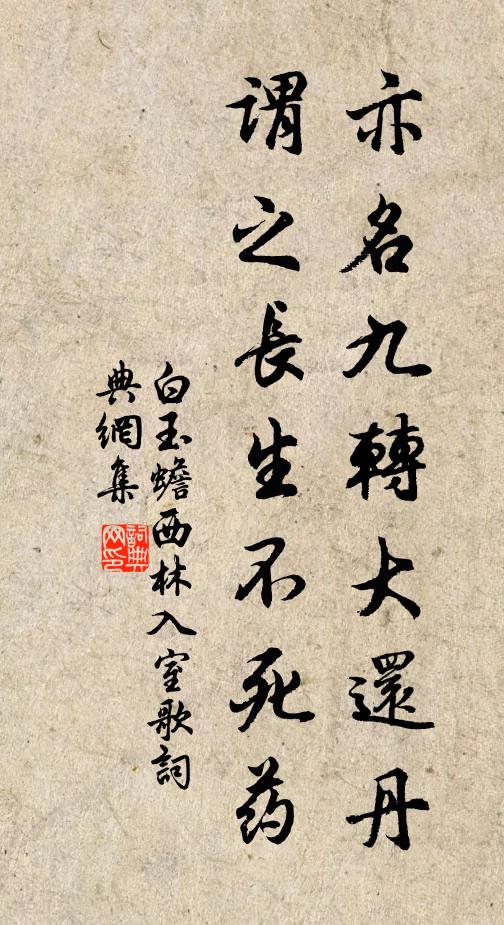 亦名九轉大還丹
謂之長生不死药
白玉蟾西林入室歌詞
典網集
詞典
网印